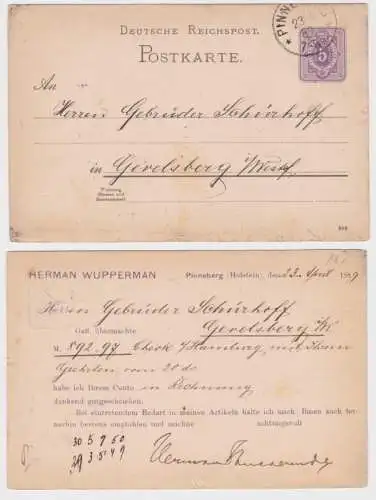 DEUTSCHE REICHSPOST.
POSTKARTE.
PINNE
23
5
An
Herren Gebrüder Schürhoff
in Gevelsberg i/Westf
Wohnung
(Strasse und
Hausnummer)
HERMAN WUPPERMAN
Pinneberg (Holstein), den 23. April 1889
Herren Gebrüder Schürhoff
Gevelsberg i/W.
Gefl. übermachte
892.97 Check a/Hamburg, mit Ihrem
Geehrten vom 20 ds
habe ich Ihrem Conto in Rechnung
dankend gutgeschrieben.
Bei eintretendem Bedarf in meinen Artikeln halte ich mich Ihnen auch fernerhin
bestens empfohlen und zeichne achtungsvoll
Herman Wupperman